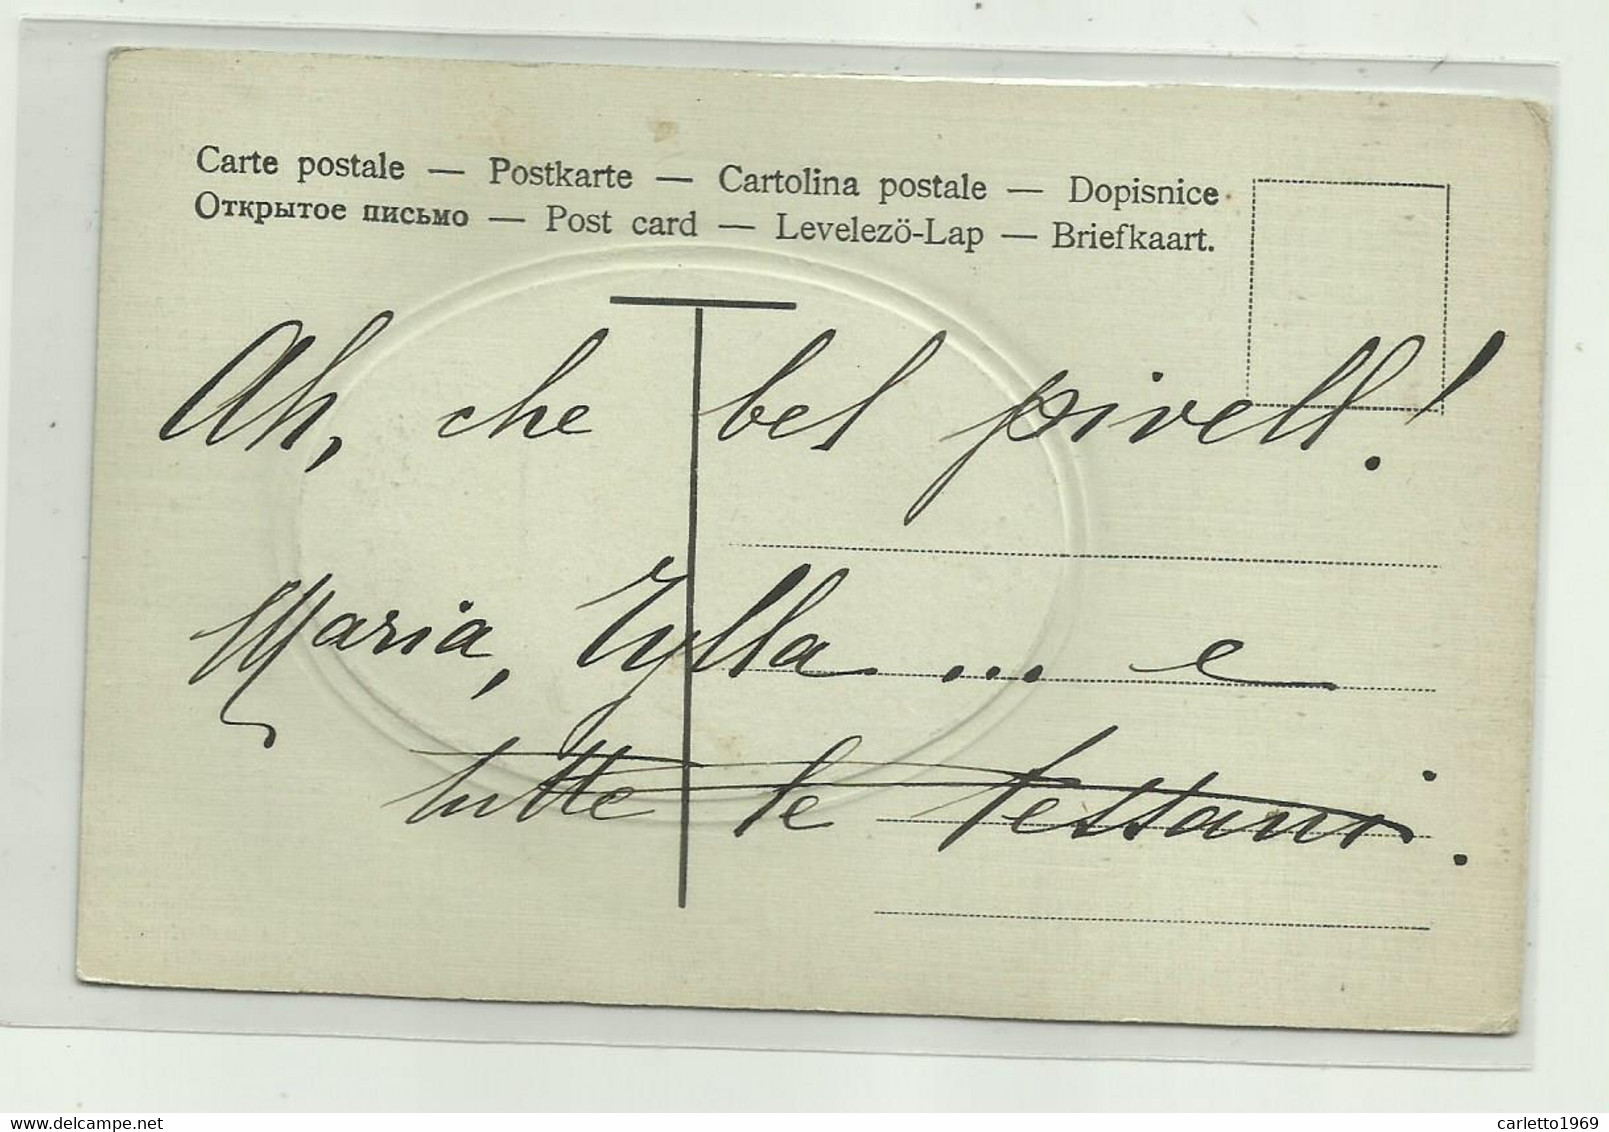 Carte postale — Postkarte — Cartolina postale — Dopisnice
Открытое письмо — Post card — Levelező-Lap — Briefkaart.
Ah, che bel pivell!
Maria, ... e
tutte le
carletto1969